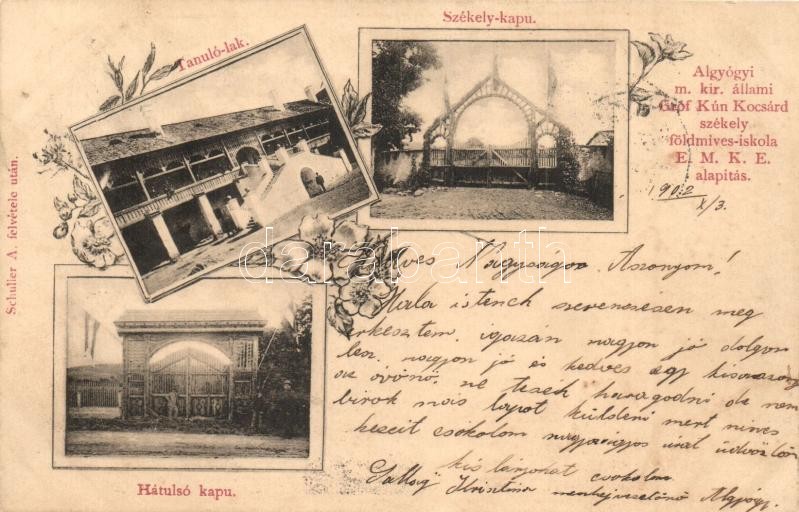 Székely-kapu.
Tanuló-lak.
Algyógyi
m. kir. állami
Gróf Kún Kocsárd
székely
földmives-iskola
E. M. K. E.
alapitás.
1902
X/3.
Schuller A. felvétele után.
darabanth
Nagyságos Asszonyom!
Hála istenek szerencsésen meg
érkeztem, igazán nagyon jó dolgom
van, nagyon jó és kedves egy kisasszony
az óvónő, ne tessék haragudni de nem
birok más lapot küldeni mert nincs
kezeit csókolom nagyságos urat üdvözlöm
kis lányokat csókolom
Krisztina Algyógy.
Hátulsó kapu.